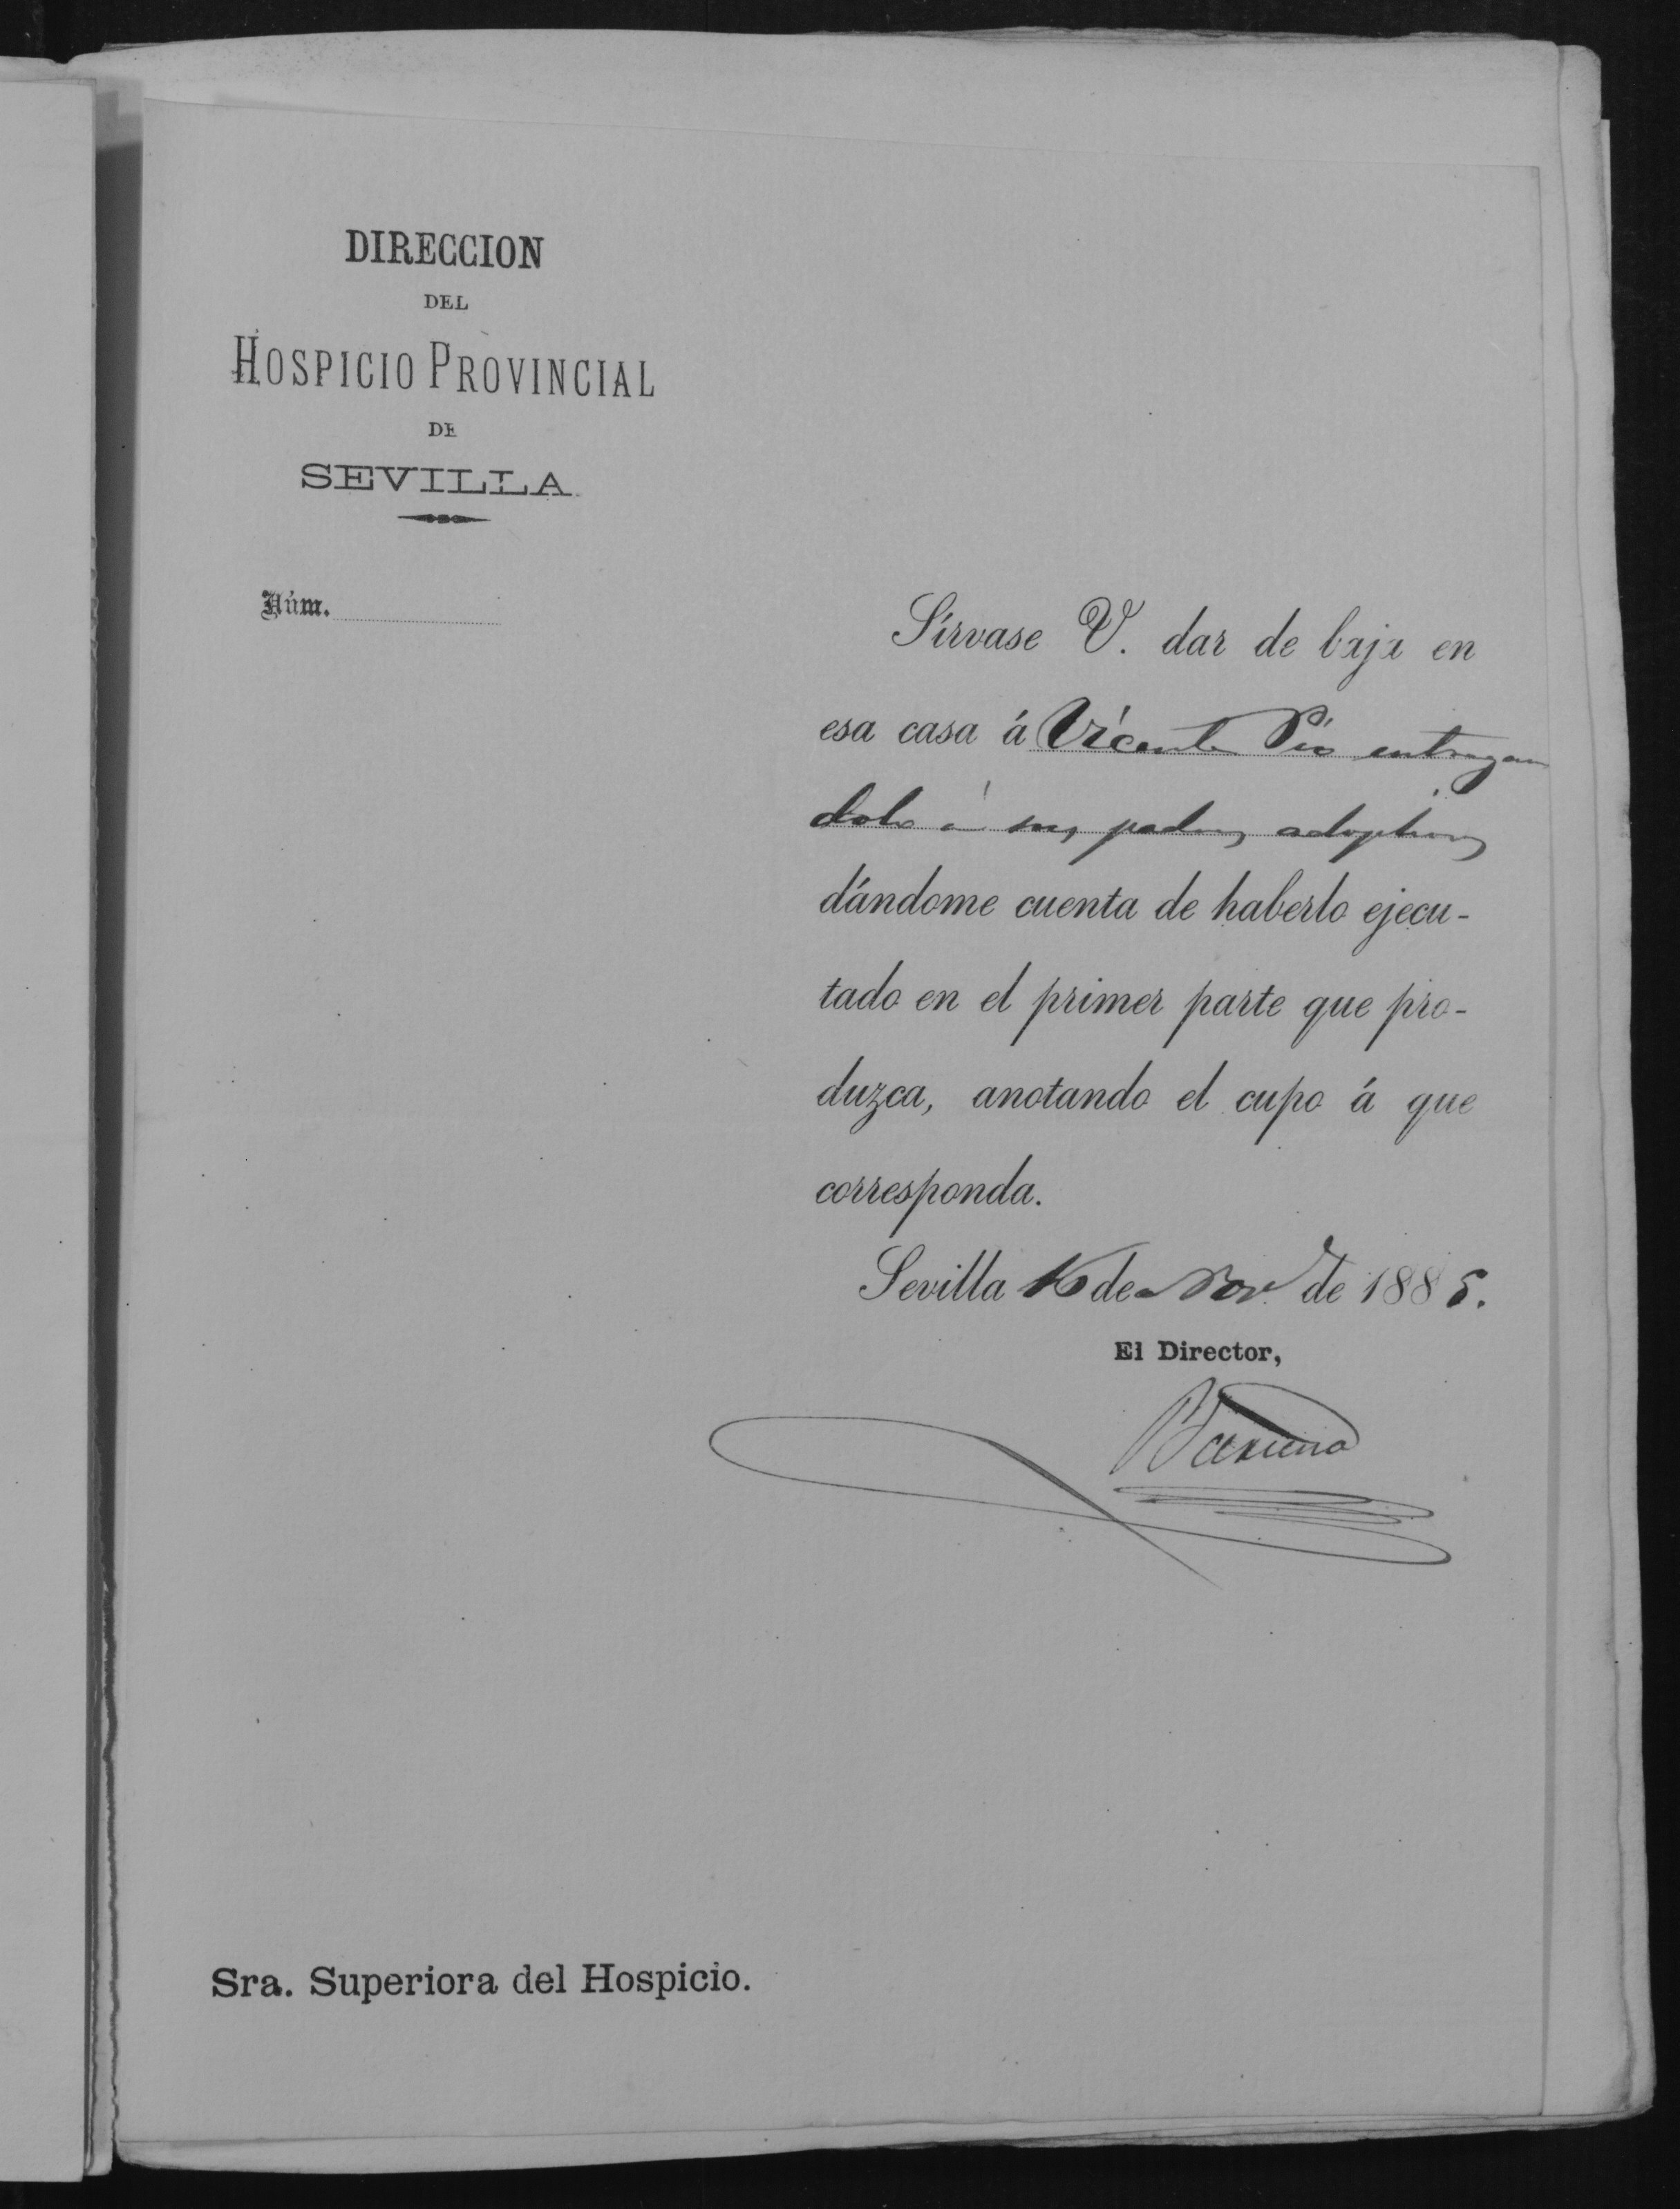 DIRECCION
DEL
HOSPICIO PROVINCIAL
DE
SEVILLA.
Núm.
Sírvase V. dar de baja en
esa casa á Vicente Pío entregan
dolo á sus padres adoptivos
dándome cuenta de haberlo ejecu-
tado en el primer parte que pro-
duzca, anotando el cupo á que
corresponda.
Sevilla 16 de Nov.e de 1885.
El Director,
Sra. Superiora del Hospicio.